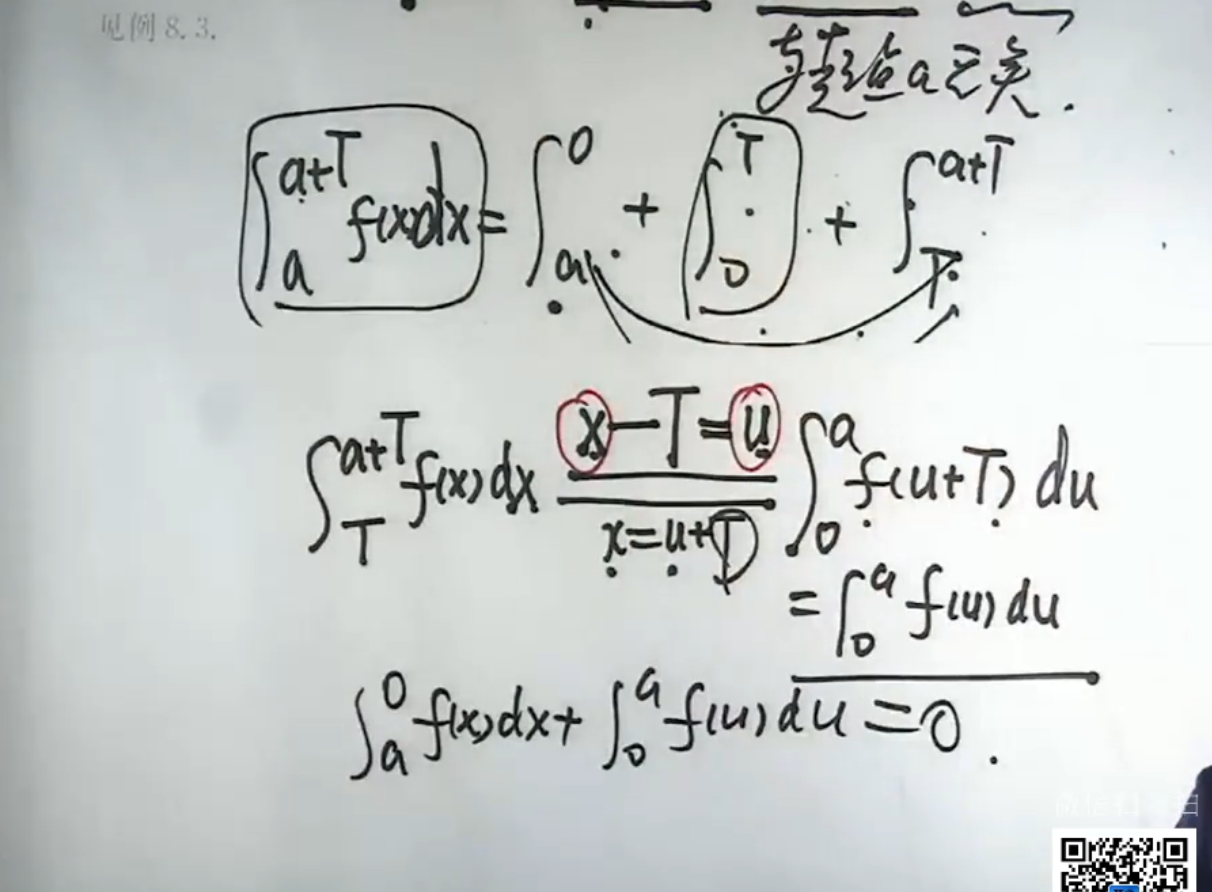 见例 8.3.
与起点a无关.
∫_a^{a+T} f(x)dx = ∫_a^0 + ∫_0^T + ∫_T^{a+T}
∫_T^{a+T} f(x)dx x-T=u ∫_0^a f(u+T)du
x=u+T
=∫_0^a f(u)du
∫_a^0 f(x)dx+∫_0^a f(u)du=0.